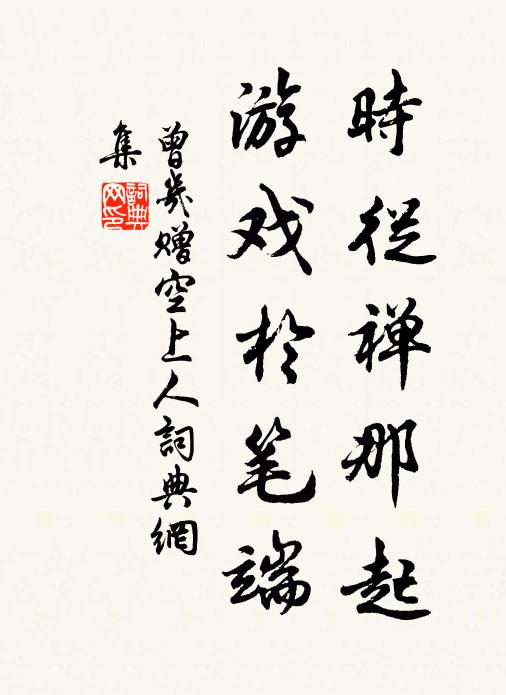 時從禅那起
游戏於笔端
曾幾赠空上人詞典網
集
詞典
网印